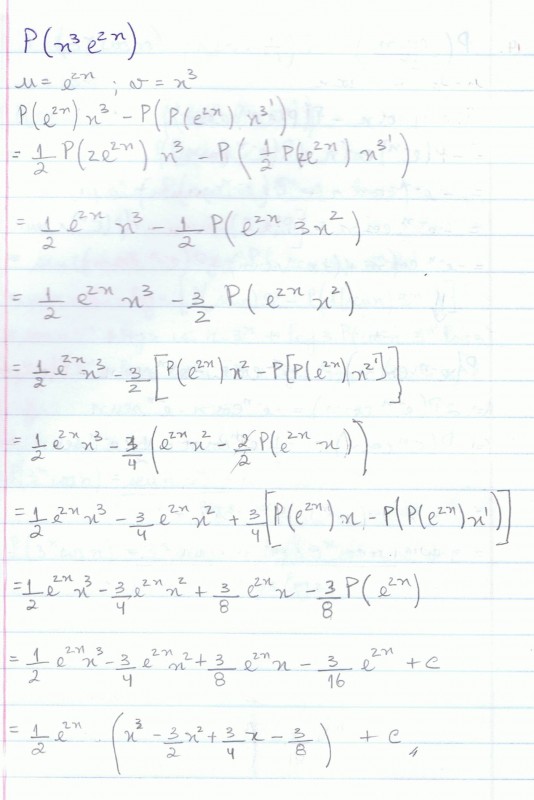 P(x³ e²ˣ)
u = e²ˣ ; v = x³
P(e²ˣ) x³ − P(P(e²ˣ) x³')
= 1/2 P(2e²ˣ) x³ − P(1/2 P(2e²ˣ) x³')
= 1/2 e²ˣ x³ − 1/2 P(e²ˣ 3x²)
= 1/2 e²ˣ x³ − 3/2 P(e²ˣ x²)
= 1/2 e²ˣ x³ − 3/2 [P(e²ˣ) x² − P[P(e²ˣ) x²']]
= 1/2 e²ˣ x³ − 3/4 (e²ˣ x² − 2/2 P(e²ˣ · x))
= 1/2 e²ˣ x³ − 3/4 e²ˣ x² + 3/4 [P(e²ˣ) x − P(P(e²ˣ) x')]
= 1/2 e²ˣ x³ − 3/4 e²ˣ x² + 3/8 e²ˣ x − 3/8 P(e²ˣ)
= 1/2 e²ˣ x³ − 3/4 e²ˣ x² + 3/8 e²ˣ x − 3/16 e²ˣ + c
= 1/2 e²ˣ · (x³ − 3/2 x² + 3/4 x − 3/8) + c